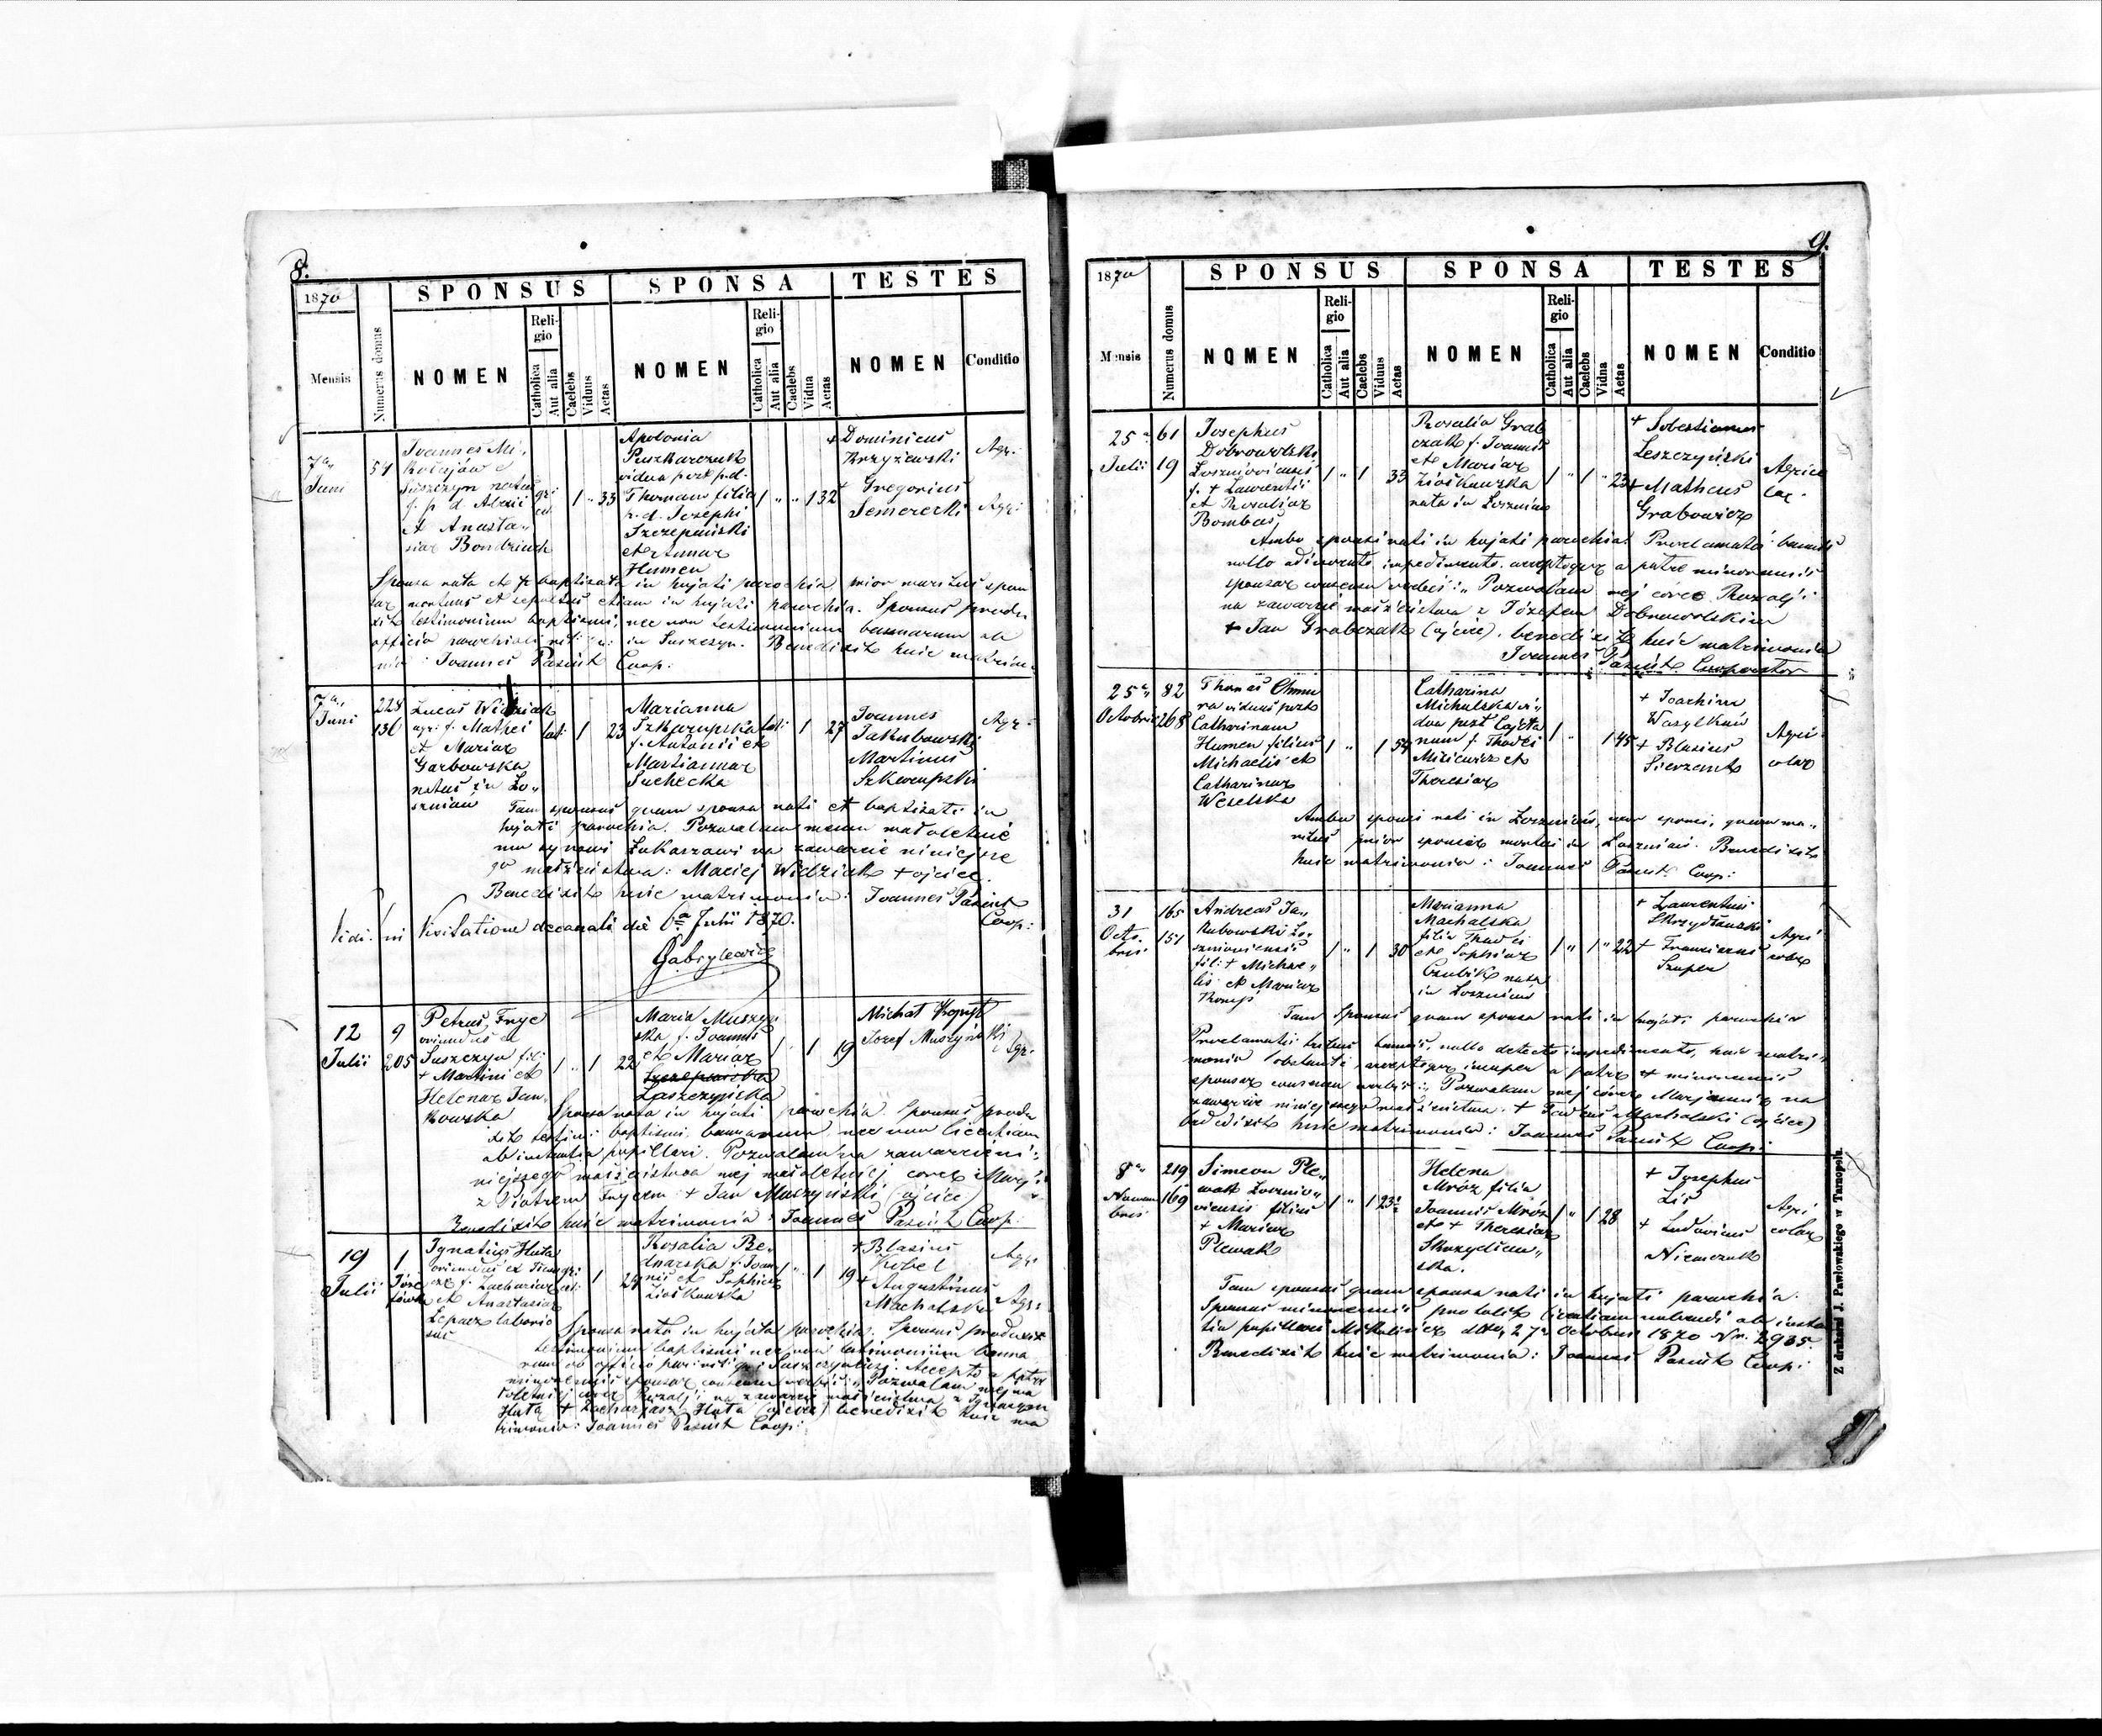 8.
1870
SPONSUS
SPONSA
TESTES
Mensis
Numerus domus
NOMEN
Religio
Catholica
Aut alia
Caelebs
Viduus
Aetas
NOMEN
Religio
Catholica
Aut alia
Caelebs
Vidua
Aetas
NOMEN
Conditio
7a
Juni
Joannes Mi
Suszczyn natus
et Anasta
siae Bondziuch
33
Apolonia
vidua post p.d.
Thomam filia
p. d. Josephi
Szczepański
et Annae
Humen
1 32
+ Dominicus
Krzyżewski
+ Gregorius
Agr.
Agr.
Sponsa nata et baptizata in hujati parochia
mortuus et sepultus etiam in hujati parochia. Sponsus produ
xit testimonium baptismi, nec non testimonium bannorum ab
officio parochiali in Suszczyn. Benedixit huic matrim
nio: Joannes Pasiut Coop:
7a
Juni
228
136
Lucas Widziak
agr. f. Mathei
et Mariae
Garbowska
natus in Ło
szniów
lat:
1
23
Marianna
Szkarupska
f. Antonii et
Mariannae
Suchecka
lat:
1
27
Joannes
Jakubowski
Martinus
Szkarupski
Agr.
Tam sponsus quam sponsa nati et baptizati in
hujati parochia. Pozwalam memu małoletnie
mu synowi Łukaszowi na zawarcie niniejsze
go małżeństwa: Maciej Widziak + ojciec.
Benedixit huic matrimonio: Joannes Pasiut
Coop:
Vidi in Visitatione decanali die 6a Julii 1870.
Gabrylewicz
12
Julii
9
205
Petrus Fryc
oriundus ex
Suszczyn fil:
+ Martini et
Helenae Jan
kowska
1 " 1
22
Maria Muszyń
ska f. Joannis
et Mariae
Laszczyńska
1 1
19
Michał
Józef Muszyński
Agr.
Sponsa nata in hujati parochia. Sponsus produ
xit testim: baptismi, bannorum, nec non licentiam
ab instantia pupillari. Pozwalam na zawarcie ni
niejszego małżeństwa mej małoletniej córce Maryi
z Piotrem Frycem + Jan Muszyński (ojciec)
Benedixit huic matrimonio: Joannes Pasiut Coop:
19
Julii
1
Józe
fówka
Ignatius Huta
f. Zachariae
et Anastasiae
Lepacz laborio
sus
1
24
Rosalia Be
dnarska f. Joan
nis et Sophiae
Ziółkowska
1 " 1
19
+ Blasius
Kobel
+ Augustinus
Machalski
Agr.
Agr.
Sponsa nata in hujati parochia. Sponsus produxit
testimonium baptismi nec non testimonium banno
rum ab officio
minorennis sponsae consensu verbis: "Pozwalam mej ma
łoletniej córce Rozalji na zawarcie małżeństwa z Ignacym
Huta + Zacharjasz Huta (ojciec) benedixit huic ma
trimonio: Joannes Pasiut Coop:
9.
1870
SPONSUS
SPONSA
TESTES
Mensis
Numerus domus
NOMEN
Religio
Catholica
Aut alia
Caelebs
Viduus
Aetas
NOMEN
Religio
Catholica
Aut alia
Caelebs
Vidua
Aetas
NOMEN
Conditio
25a
Julii
61
19
Josephus
Dobrowolski
Łoszniowiensis
f. + Laurentii
et Rosaliae
Bombas
1 " 1
33
Rosalia Grab
czak f. Joannis
et Mariae
Ziółkowska
nata in Łoszniów
1 " 1 " 23
+ Sebastianus
Leszczyński
+ Matheus
Grabowicz
Agrico
lae.
Ambo sponsi nati in hujati parochia. Proclamatis bannis
nullo adinvento impedimento, acceptoque a patre minorennis
sponsae consensu verbis: "Pozwalam mej córce Rozalji
na zawarcie małżeństwa z Józefem Dobrowolskim
+ Jan Grabczak (ojciec). benedixit huic matrimonio
Joannes Pasiut Cooperator
25a
Octobris
82
268
Thomas Chmu
ra viduus post
Catharinam
Humen filius
Michaelis et
Catharinae
Weselska
1 "
1 54
Catharina
Michalska vi
dua post Cajeta
num f. Thadei
Misiewicz et
Theresiae
1 "
1 45
+ Joachim
Wasylków
+ Blasius
Agri
colae
Ambo sponsi nati in Łoszniów, uxor sponsi, quam ma
ritus prior sponsae mortui in Łoszniów. Benedixit
huic matrimonio: Joannes Pasiut Coop:
31
Octo
bris
165
151
Andreas Ja
kubowski Ło
szniowiensis
fil: + Michae
lis et Mariae
1 " 1
30
Marianna
Machalska
filia Thadei
et Sophiae
Czubik nata
in Łoszniów
1 " 1 " 22
+ Laurentius
Skrzydłowski
+ Franciscus
Szuper
Agri
colae
Tam sponsus quam sponsa nati in hujati parochia
Proclamatis tribus bannis, nullo detecto impedimento, huic matri
monio obstanti, acceptoque insuper a patre + minorennis
sponsae consensu verbis: "Pozwalam mej córce Marjannie na
zawarcie niniejszego małżeństwa. + Tadeusz Machalski (ojciec)
benedixit huic matrimonio: Joannes Pasiut Coop:
8a
Novem
bris
219
169
Simeon Ple
wak Łosznio
viensis filius
+ Mariae
Plewak
1 " 1 23
Helena
Mróz filia
Joannis Mróz
et + Theresiae
ska.
1 " 1 28
+ Josephus
Lis
+ Ludovicus
Niemczuk
Agri
colae
Tam sponsus quam sponsa nati in hujati parochia.
Sponsus minorennis protulit licentiam nubendi ab instan
tia pupillari Mikulińce ddto 27 Octobris 1870 Nr. 2905.
Benedixit huic matrimonio: Joannes Pasiut Coop:
Z drukarni J. Pawłowskiego w Tarnopolu.